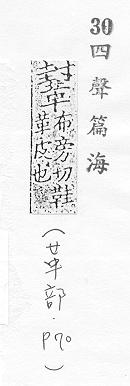 30 四聲篇海
鞤布旁切鞋
革皮也
(革部．P70)